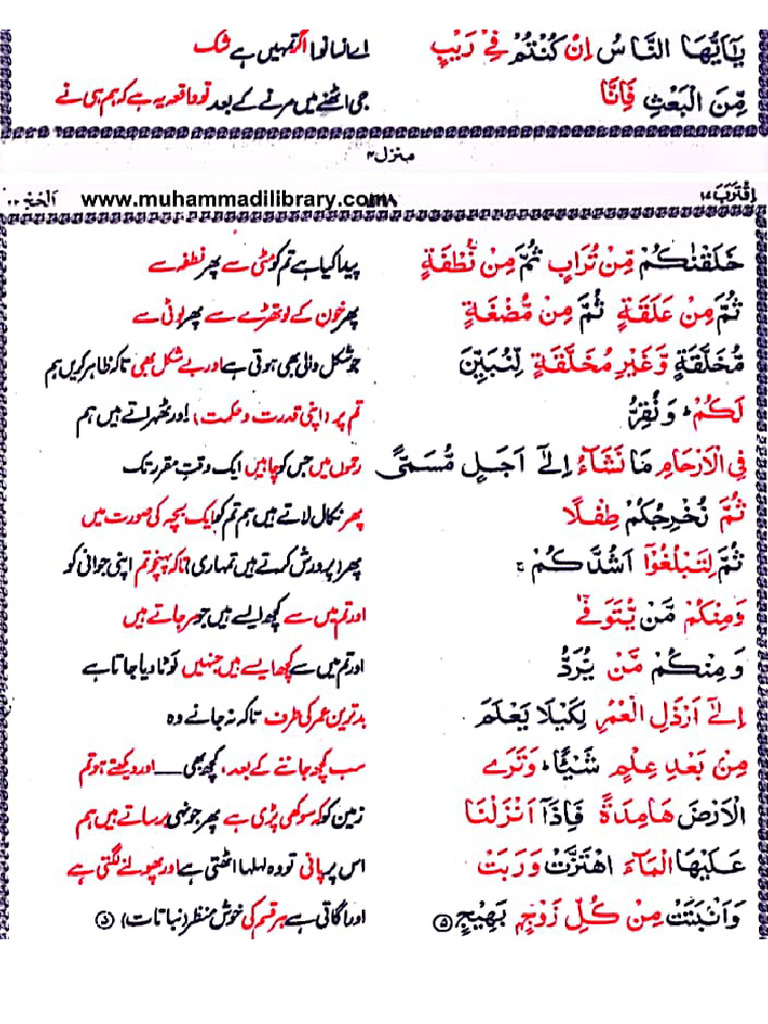 يٰٓاَيُّهَا النَّاسُ اِنْ كُنْتُمْ فِيْ رَيْبٍ اے انسانو! اگر تمہیں ہے شک
مِّنَ الْبَعْثِ فَاِنَّا جی اٹھنے میں مرنے کے بعد تو واقعہ یہ ہے کہ ہم ہی نے
منزل۴
اِقْتَرَبَ www.muhammadilibrary.com اَلْحَجّ ۲۲
خَلَقْنٰكُمْ مِّنْ تُرَابٍ ثُمَّ مِنْ نُّطْفَةٍ پیدا کیا ہے تم کو مٹی سے پھر نطفہ سے
ثُمَّ مِنْ عَلَقَةٍ ثُمَّ مِنْ مُّضْغَةٍ پھر خون کے لوتھڑے سے پھر بوٹی سے
مُّخَلَّقَةٍ وَّغَيْرِ مُخَلَّقَةٍ لِّنُبَيِّنَ جو شکل والی بھی ہوتی ہے اور بے شکل بھی تاکہ ظاہر کریں ہم
لَكُمْ ؕ وَنُقِرُّ تم پر (اپنی قدرت و حکمت) اور ٹھہراتے ہیں ہم
فِي الْاَرْحَامِ مَا نَشَآءُ اِلٰٓى اَجَلٍ مُّسَمًّى رحموں میں جس کو چاہیں ایک وقتِ مقرر تک
ثُمَّ نُخْرِجُكُمْ طِفْلًا پھر نکال لاتے ہیں ہم تم کو ایک بچہ کی صورت میں
ثُمَّ لِتَبْلُغُوْٓا اَشُدَّكُمْ ۚ پھر (پرورش کرتے ہیں تمہاری) تاکہ پہنچو تم اپنی جوانی کو
وَمِنْكُمْ مَّنْ يُّتَوَفّٰى اور تم میں سے کچھ ایسے ہیں جو مر جاتے ہیں
وَمِنْكُمْ مَّنْ يُّرَدُّ اور تم میں سے کچھ ایسے ہیں جنہیں لوٹا دیا جاتا ہے
اِلٰٓى اَرْذَلِ الْعُمُرِ لِكَيْلَا يَعْلَمَ بدترین عمر کی طرف تاکہ نہ جانے وہ
مِنْۢ بَعْدِ عِلْمٍ شَيْـًٔا ؕ وَتَرَى سب کچھ جاننے کے بعد، کچھ بھی ـــ اور دیکھتے ہو تم
الْاَرْضَ هَامِدَةً فَاِذَآ اَنْزَلْنَا زمین کو کہ سوکھی پڑی ہے پھر جونہی برساتے ہیں ہم
عَلَيْهَا الْمَآءَ اهْتَزَّتْ وَرَبَتْ اس پر پانی تو وہ لہلہا اٹھتی ہے اور پھولنے لگتی ہے
وَاَنْۢبَتَتْ مِنْ كُلِّ زَوْجٍۭ بَهِيْجٍ ۵ اور اگاتی ہے ہر قسم کی خوش منظر (نباتات) ۵